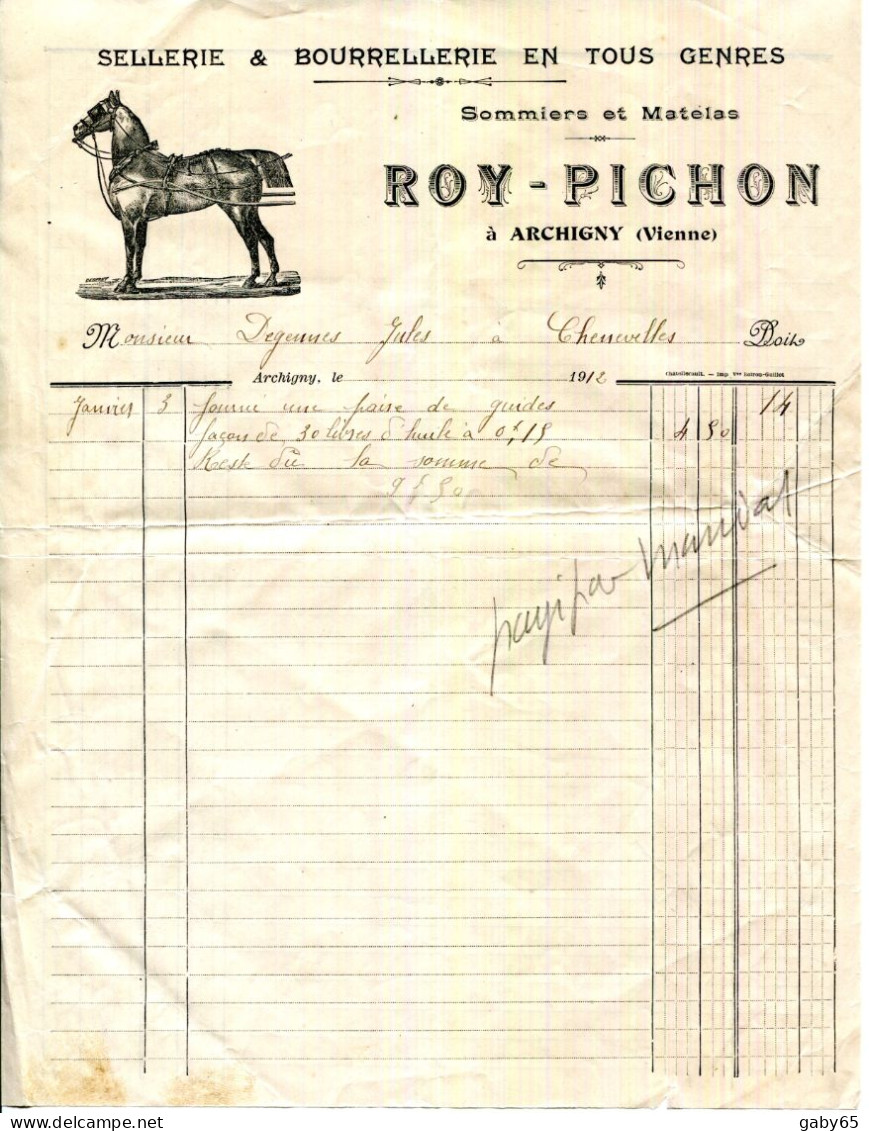 SELLERIE & BOURRELLERIE EN TOUS GENRES
Sommiers et Matelas
ROY-PICHON
à ARCHIGNY (Vienne)
Monsieur Degennes Jules à Chenevelles Doit
Archigny, le 1912
Châtellerault. — Imp Vve
Janvier 3 fourni une paire de guides 14
façon de 30 litres d'huile à 0f,15 4 50
Reste dû la somme de
9f 50
payé par mandat
gaby65